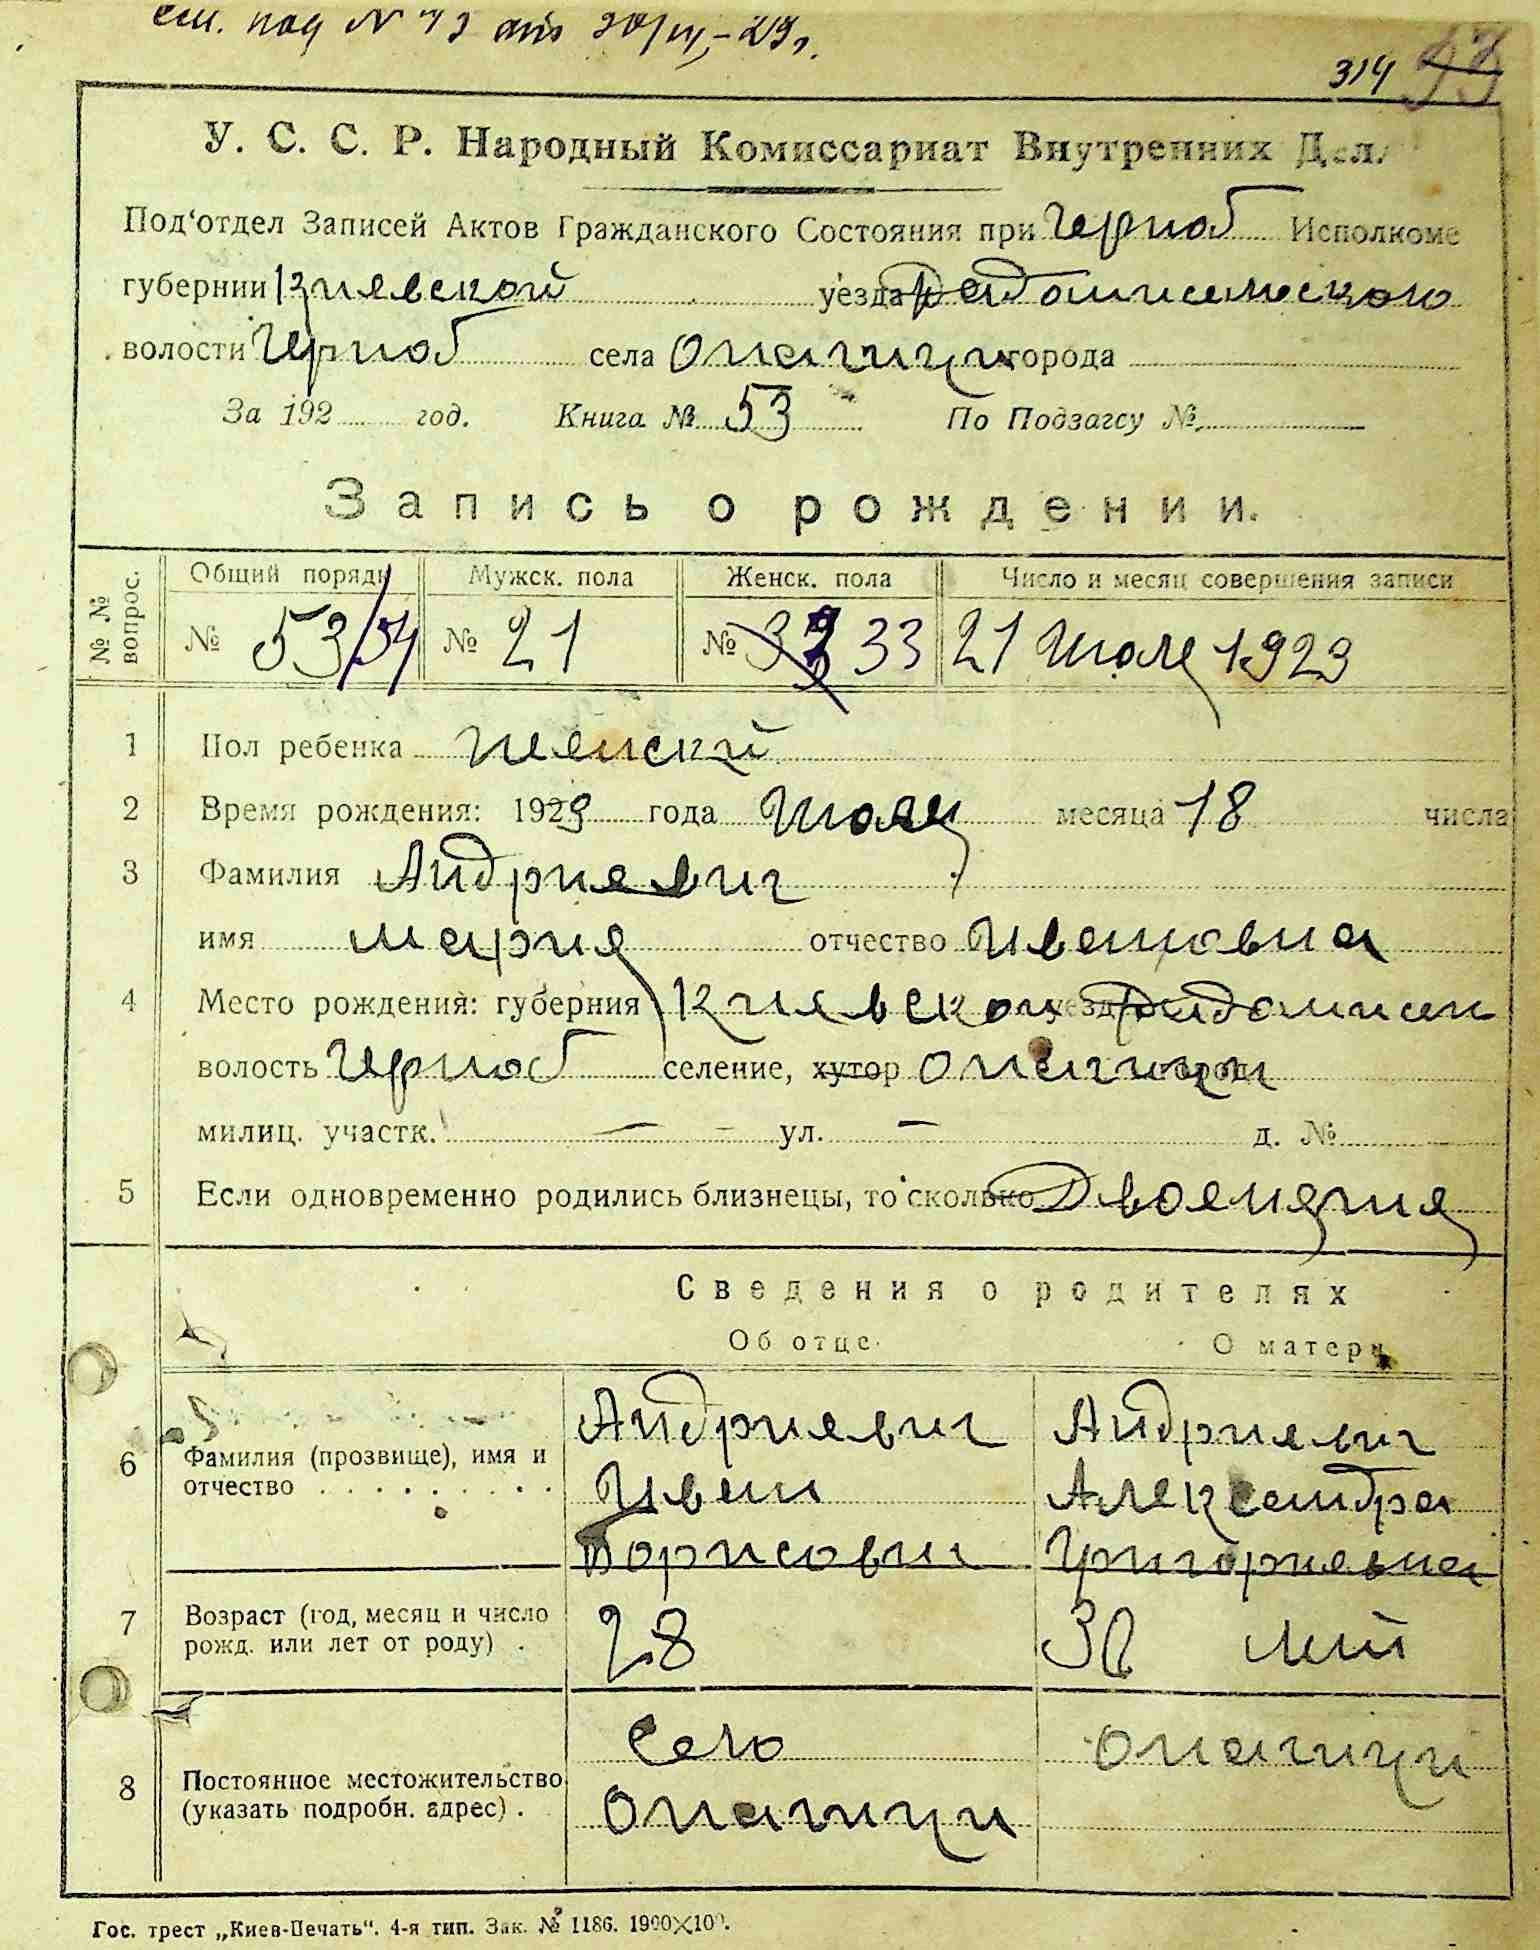 см. под № 43 от
314
У. С. С. Р. Народный Комиссариат Внутренних Дел.
Под'отдел Записей Актов Гражданского Состояния при Черноб Исполкоме
губернии Киевской уезда Радомисельского
волости Черноб села Опачичи города
За 192 год. Книга № 53 По Подзагсу №
Запись о рождении.
№ № вопрос. Общий порядк Мужск. пола Женск. пола Число и месяц совершения записи
№ 53/54 № 21 № 33 21 Июля 1923
1 Пол ребенка женский
2 Время рождения: 1923 года Июля месяца 18 числа
3 Фамилия Андриевич
имя Мария отчество Ивановна
4 Место рождения: губерния Киевской уезд Радомисел
волость Черноб селение, хутор Опачичи город
милиц. участк. — ул. — д. №
5 Если одновременно родились близнецы, то сколько Двоенячия
Сведения о родителях
Об отце О матери
6 Фамилия (прозвище), имя и отчество
Андриевич Андриевич
Иван Александра
Борисович Григориевна
7 Возраст (год, месяц и число рожд. или лет от роду) . 28 30 лет
8 Постоянное местожительство (указать подробн. адрес) .
Село Опачичи
Опачичи
Гос. трест „Киев-Печать“. 4-я тип. Зак. № 1186. 1900×100.